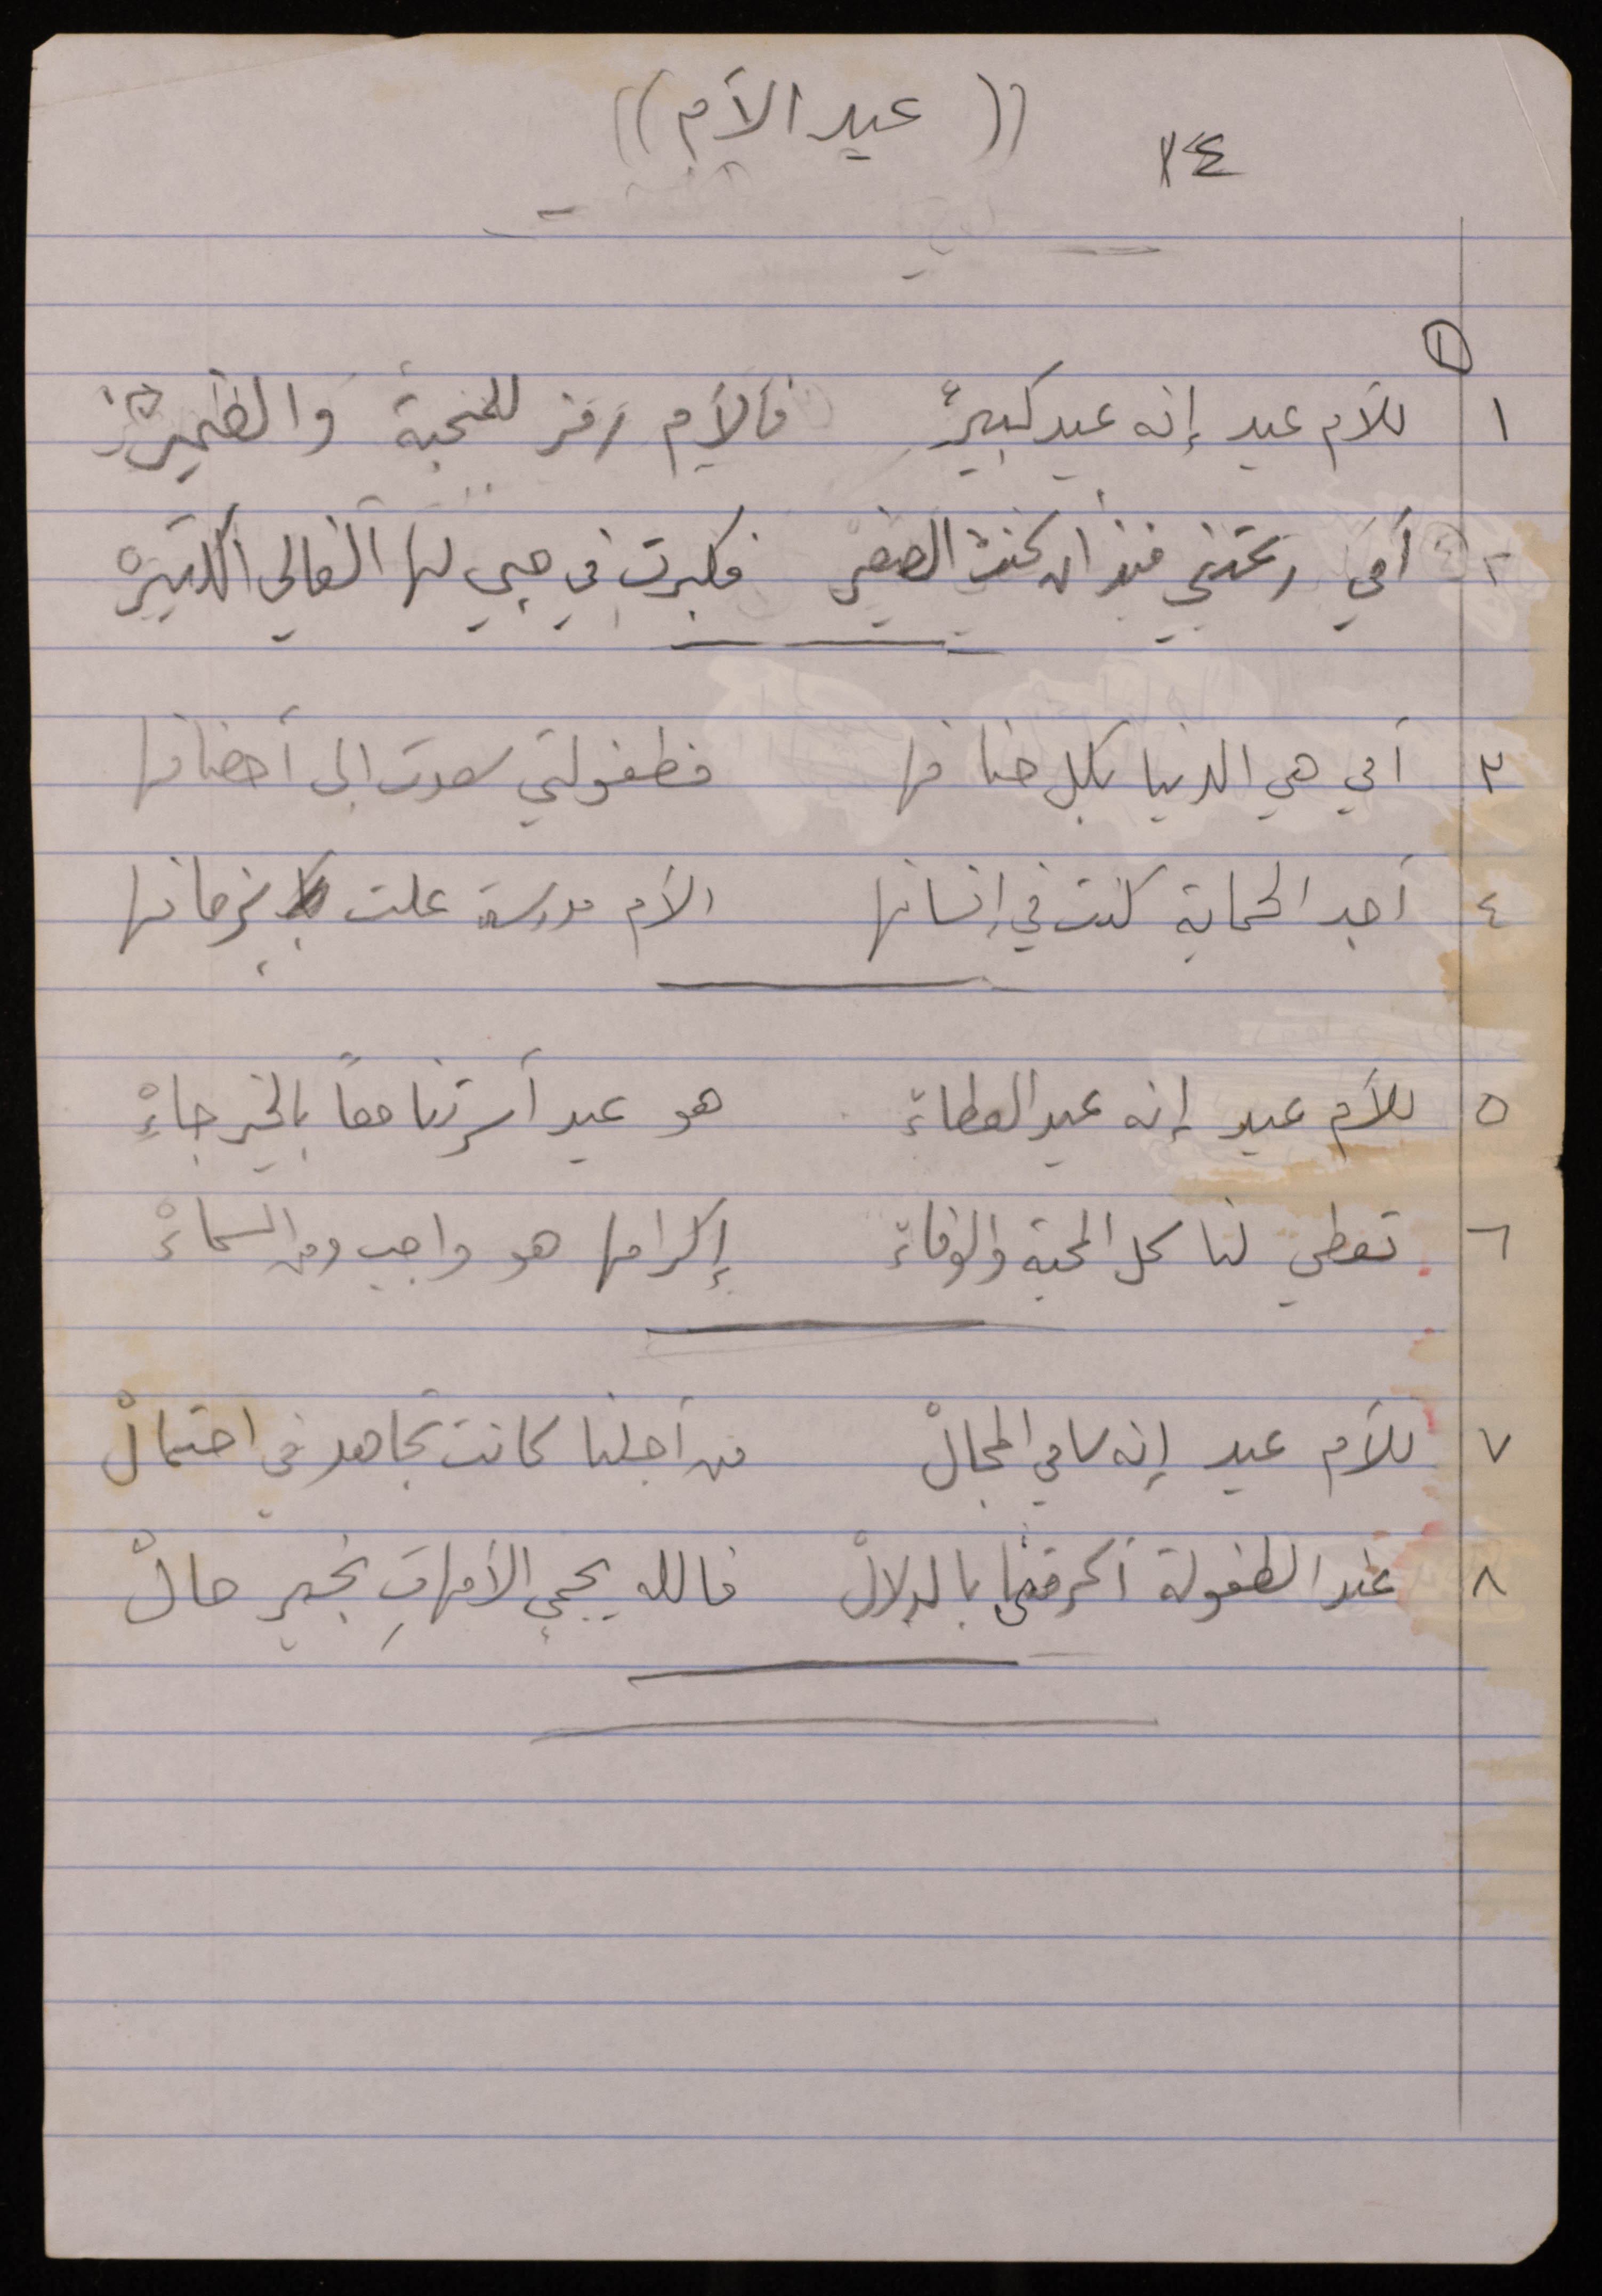 (( عيد الأم ))
٢٤
١
١ للأم عيد إنه عيد كبيرْ فالأم رمز للمحبة والضميرْ
٢ أمي رعتني منذ ان كنت الصغير فكبرت في حبي لها الغالي الكبير
٣ أمي هي الدنيا بكل حنانها فطفولتي سعدت الى أحضانها
٤ أجد الحماية كنت في إنسانها الأم مدرسة علت بزمانها
٥ للأم عيد إنه عيد العطاءْ هو عيد أسرتنا معاً بالخير جاءْ
٦ تعطي لنا كل المحبة والوفاءْ إكرامها هو واجب ومن السماءْ
٧ للأم عيد إنه سامي المجالْ من أجلنا كانت تجاهد في احتمالْ
٨ عند الطفولة أكرمتنا بالدلالْ فالله يحمي الأمهاتِ بخير حالْ